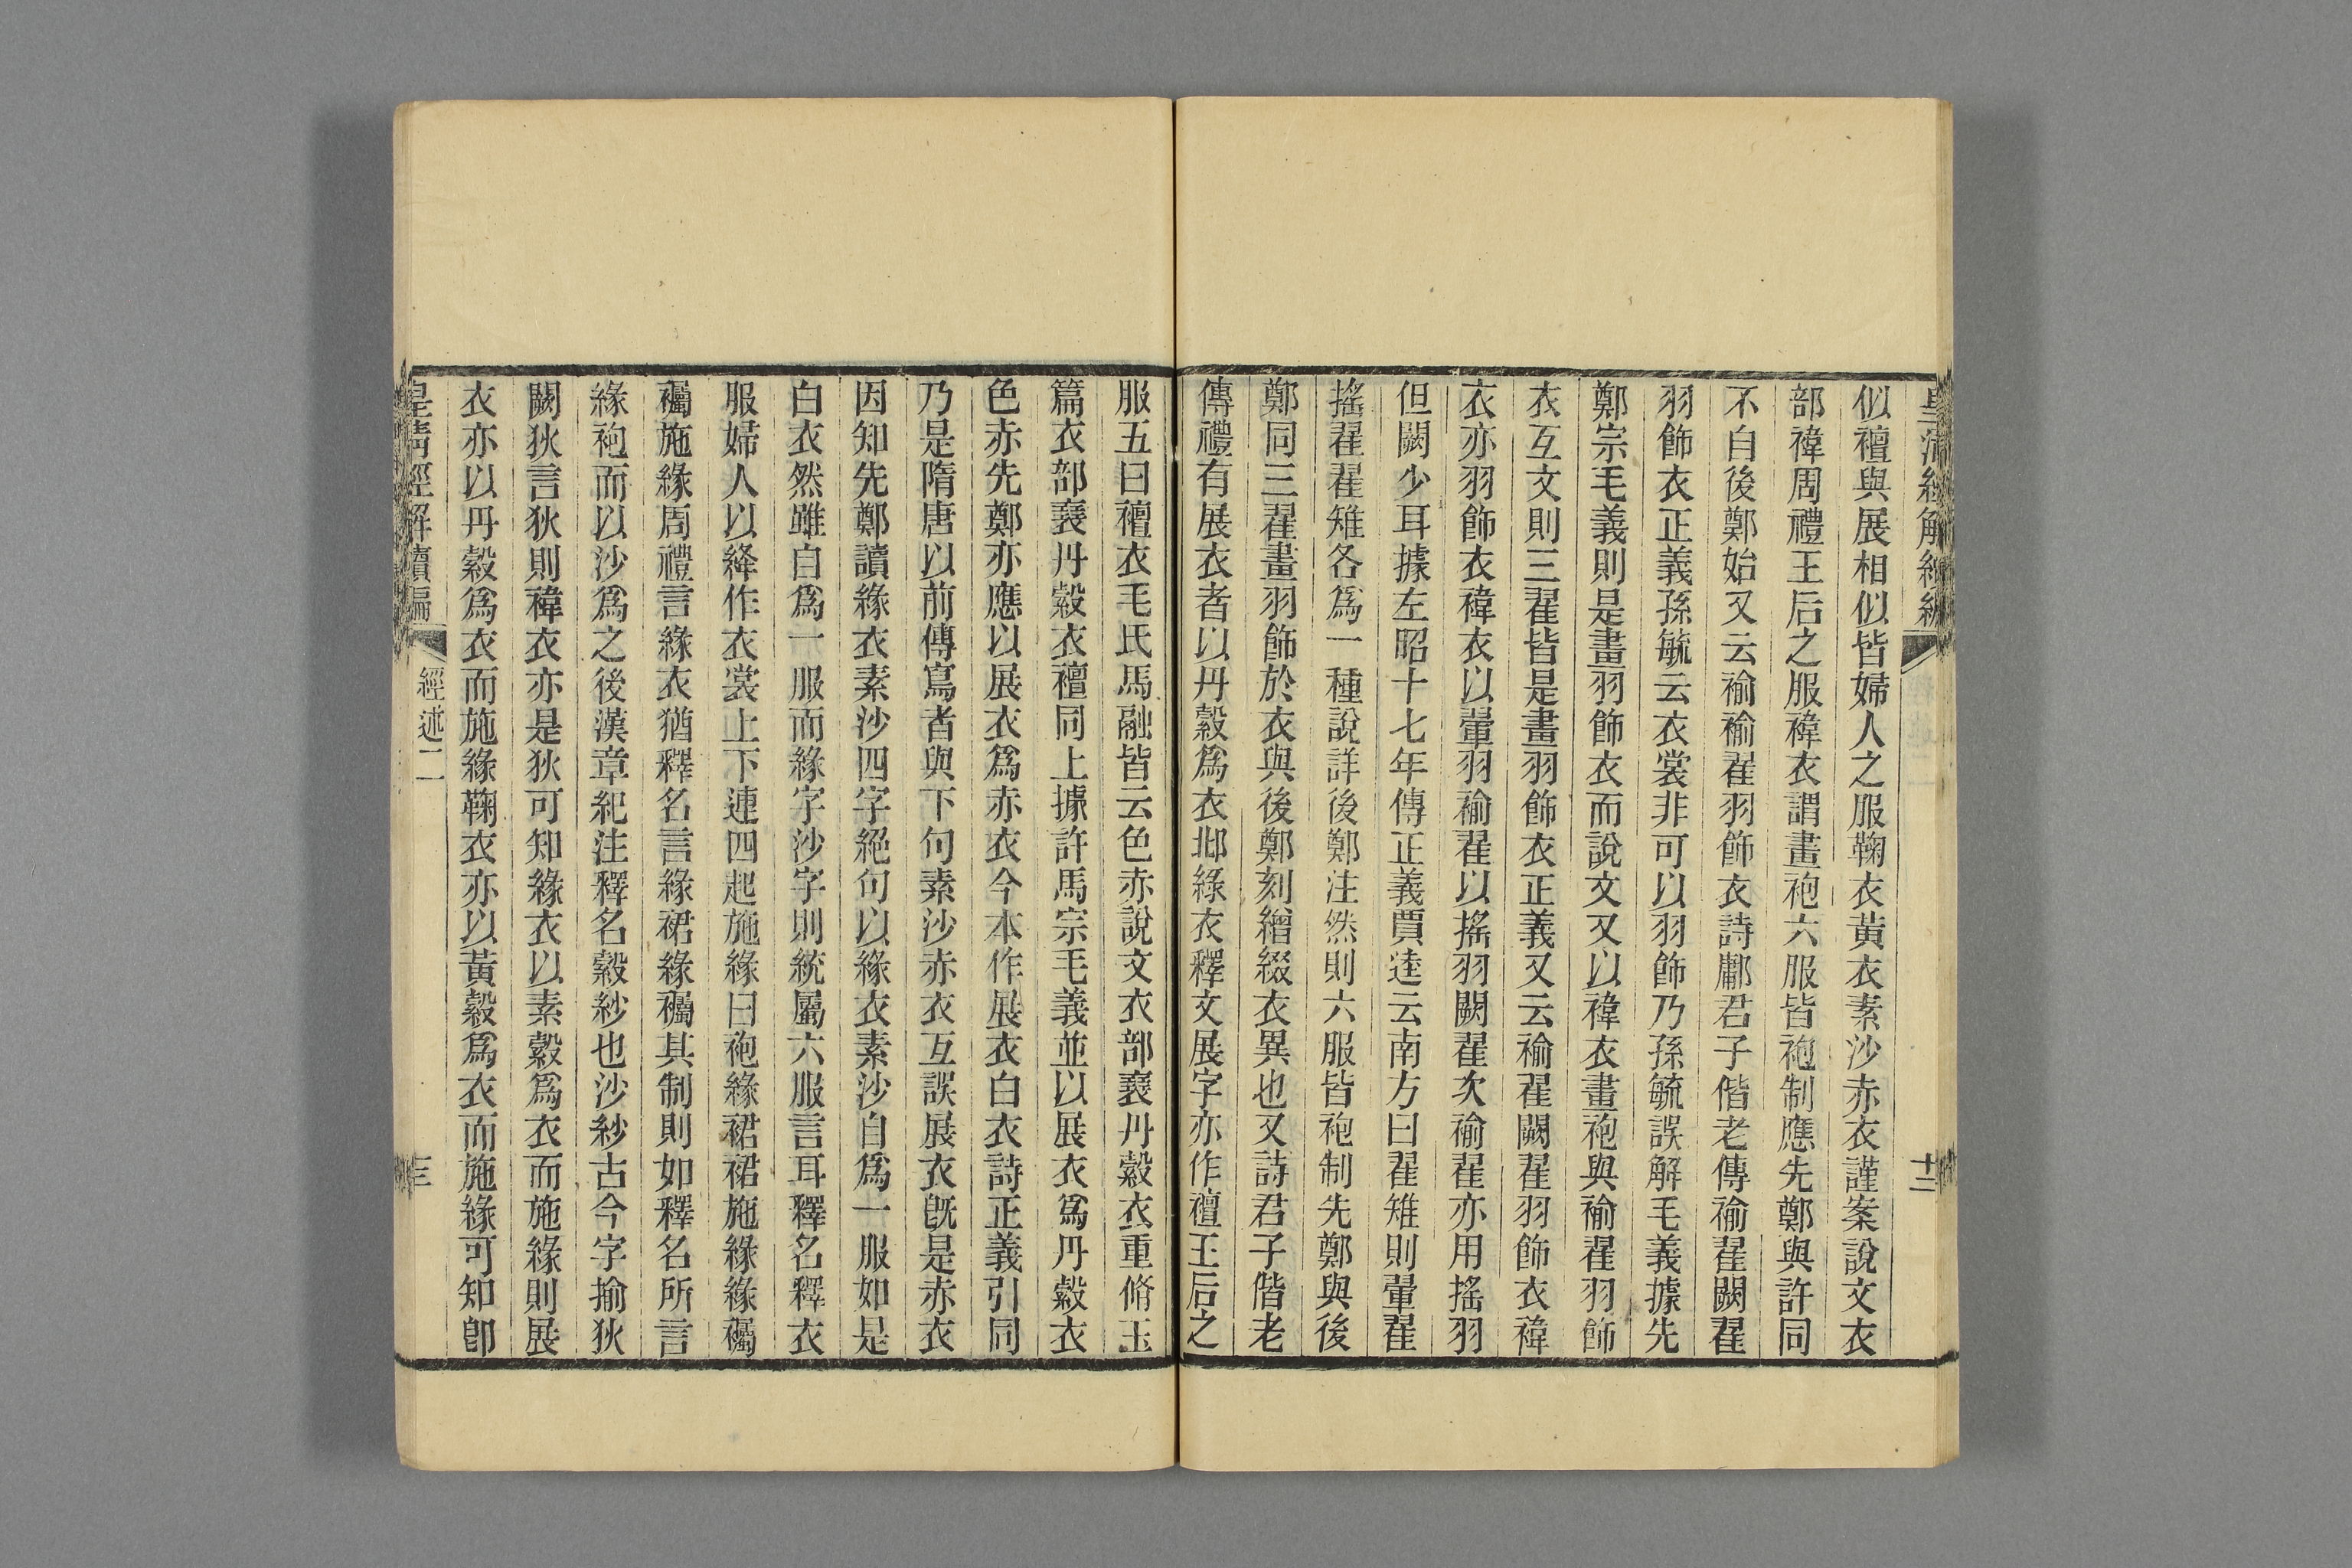 似襢與展相似皆婦人之服鞠衣黃衣素沙赤衣謹案說文衣
部褘周禮王后之服褘衣謂畫袍六服皆袍制應先鄭與許同
不自後鄭始又云褕褕翟羽飾衣詩鄘君子偕老傳褕翟闕翟
羽飾衣正義孫毓云衣裳非可以羽飾乃孫毓誤解毛義據先
鄭宗毛義則是畫羽飾衣而說文又以褘衣畫袍與褕翟羽飾
衣互文則三翟皆是畫羽飾衣正義又云褕翟闕翟羽飾衣褘
衣亦羽飾衣褘衣以翬羽褕翟以搖羽闕翟次褕翟亦用搖羽
但闕少耳據左昭十七年傳正義賈逵云南方曰翟雉則翬翟
搖翟翟雉各爲一種說詳後鄭注然則六服皆袍制先鄭與後
鄭同三翟畫羽飾於衣與後鄭刻繒綴衣異也又詩君子偕老
傳禮有展衣者以丹縠爲衣邶綠衣釋文展字亦作襢王后之
服五曰襢衣毛氏馬融皆云色赤說文衣部襄丹縠衣重脩玉
篇衣部襄丹縠衣襢同上據許馬宗毛義並以展衣爲丹縠衣
色赤先鄭亦應以展衣爲赤衣今本作展衣白衣詩正義引同
乃是隋唐以前傳寫者與下句素沙赤衣互誤展衣旣是赤衣
因知先鄭讀緣衣素沙四字絕句以緣衣素沙自爲一服如是
白衣然雖自爲一服而緣字沙字則統屬六服言耳釋名釋衣
服婦人以絳作衣裳上下連四起施緣曰袍緣裙裙施緣緣襡
襡施緣周禮言緣衣猶釋名言緣裙緣襡其制則如釋名所言
緣袍而以沙爲之後漢章紀注釋名縠紗也沙紗古今字揄狄
闕狄言狄則褘衣亦是狄可知緣衣以素縠爲衣而施緣則展
衣亦以丹縠爲衣而施緣鞠衣亦以黃縠爲衣而施緣可知卽
皇清經解續編
經述二